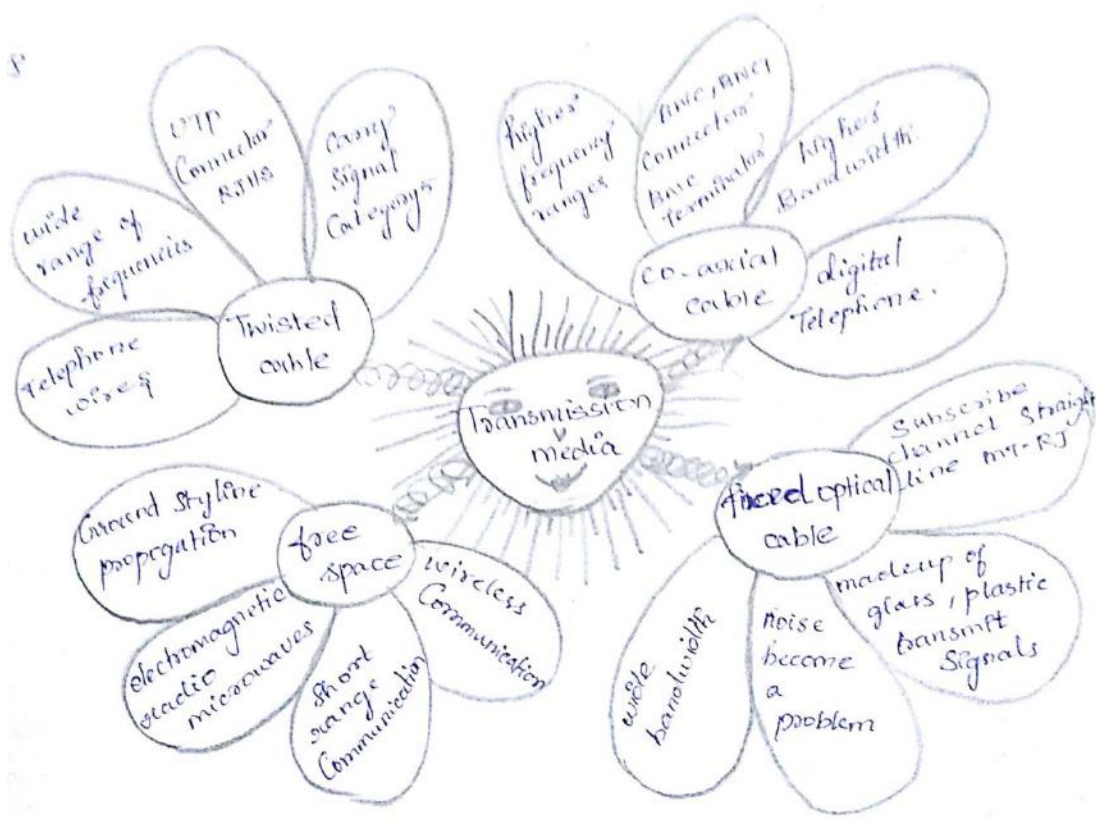 Transmission
media
Twisted
cable
Telephone
wires
wide
range of
frequencies
UTP
Connector
RJ11S
carry
Signal
Category5
co-axial
cable
higher
frequency
ranges
BNC, BNCT
connectors
BNC
Terminator
highers
Bandwidth.
digital
Telephone.
fixed optical
cable
Subscribe
channel Straight
line MT-RJ
madeup of
glass, plastic
transmit
Signals
noise
become
a
problem
wide
bandwidth
free
space
Ground Skyline
propegation
electromagnetic
radio
microwaves
Short
range
Communication
wireless
Communication